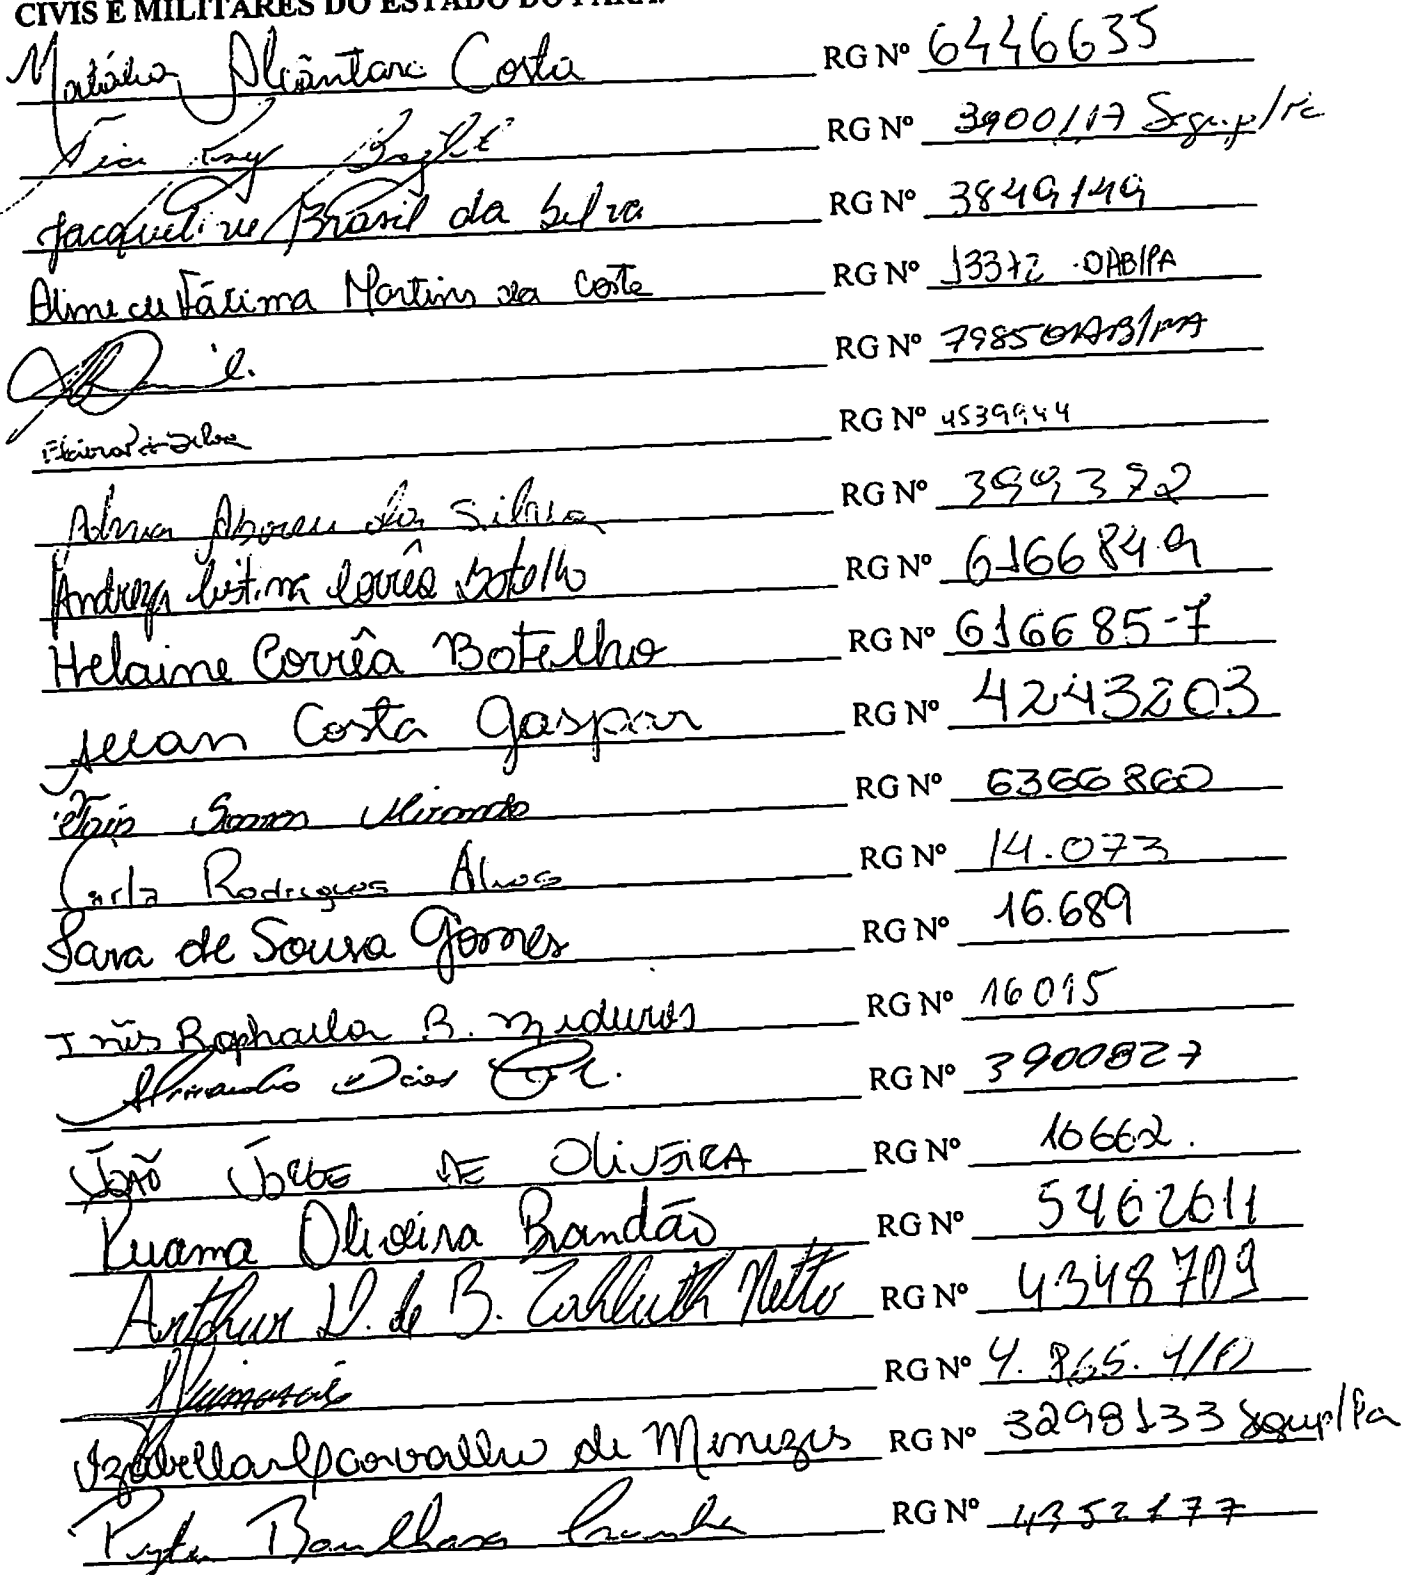 CIVIS E MILITARES DO ESTADO DO PARÁ.
Alcântara Costa RG Nº 6446635
RG Nº 3900117 Segup/Pa
Jacqueline Brasil da Silva RG Nº 3849149
Fátima Martins da Costa RG Nº 13372 OAB/PA
RG Nº 7985 OAB/PA
Silva RG Nº 4539944
Abreu da Silva RG Nº 399372
Andreza Cristina Corrêa Botelho RG Nº 6166849
Helaine Corrêa Botelho RG Nº 616685-7
Costa Gaspar RG Nº 4243203
Miranda RG Nº 6366860
Carla Rodrigues Alves RG Nº 14.073
Sara de Sousa Gomes RG Nº 16.689
Inês Raphaela B. Medeiros RG Nº 16015
Dias RG Nº 3900827
João Jorge de Oliveira RG Nº
Luama Oliveira Brandão RG Nº 5462611
Arthur D. de B. Zahluth Netto RG Nº 4348709
Guimarães RG Nº
Izabella Carvalho de Menezes RG Nº 3298133 Segup/Pa
RG Nº 4352177